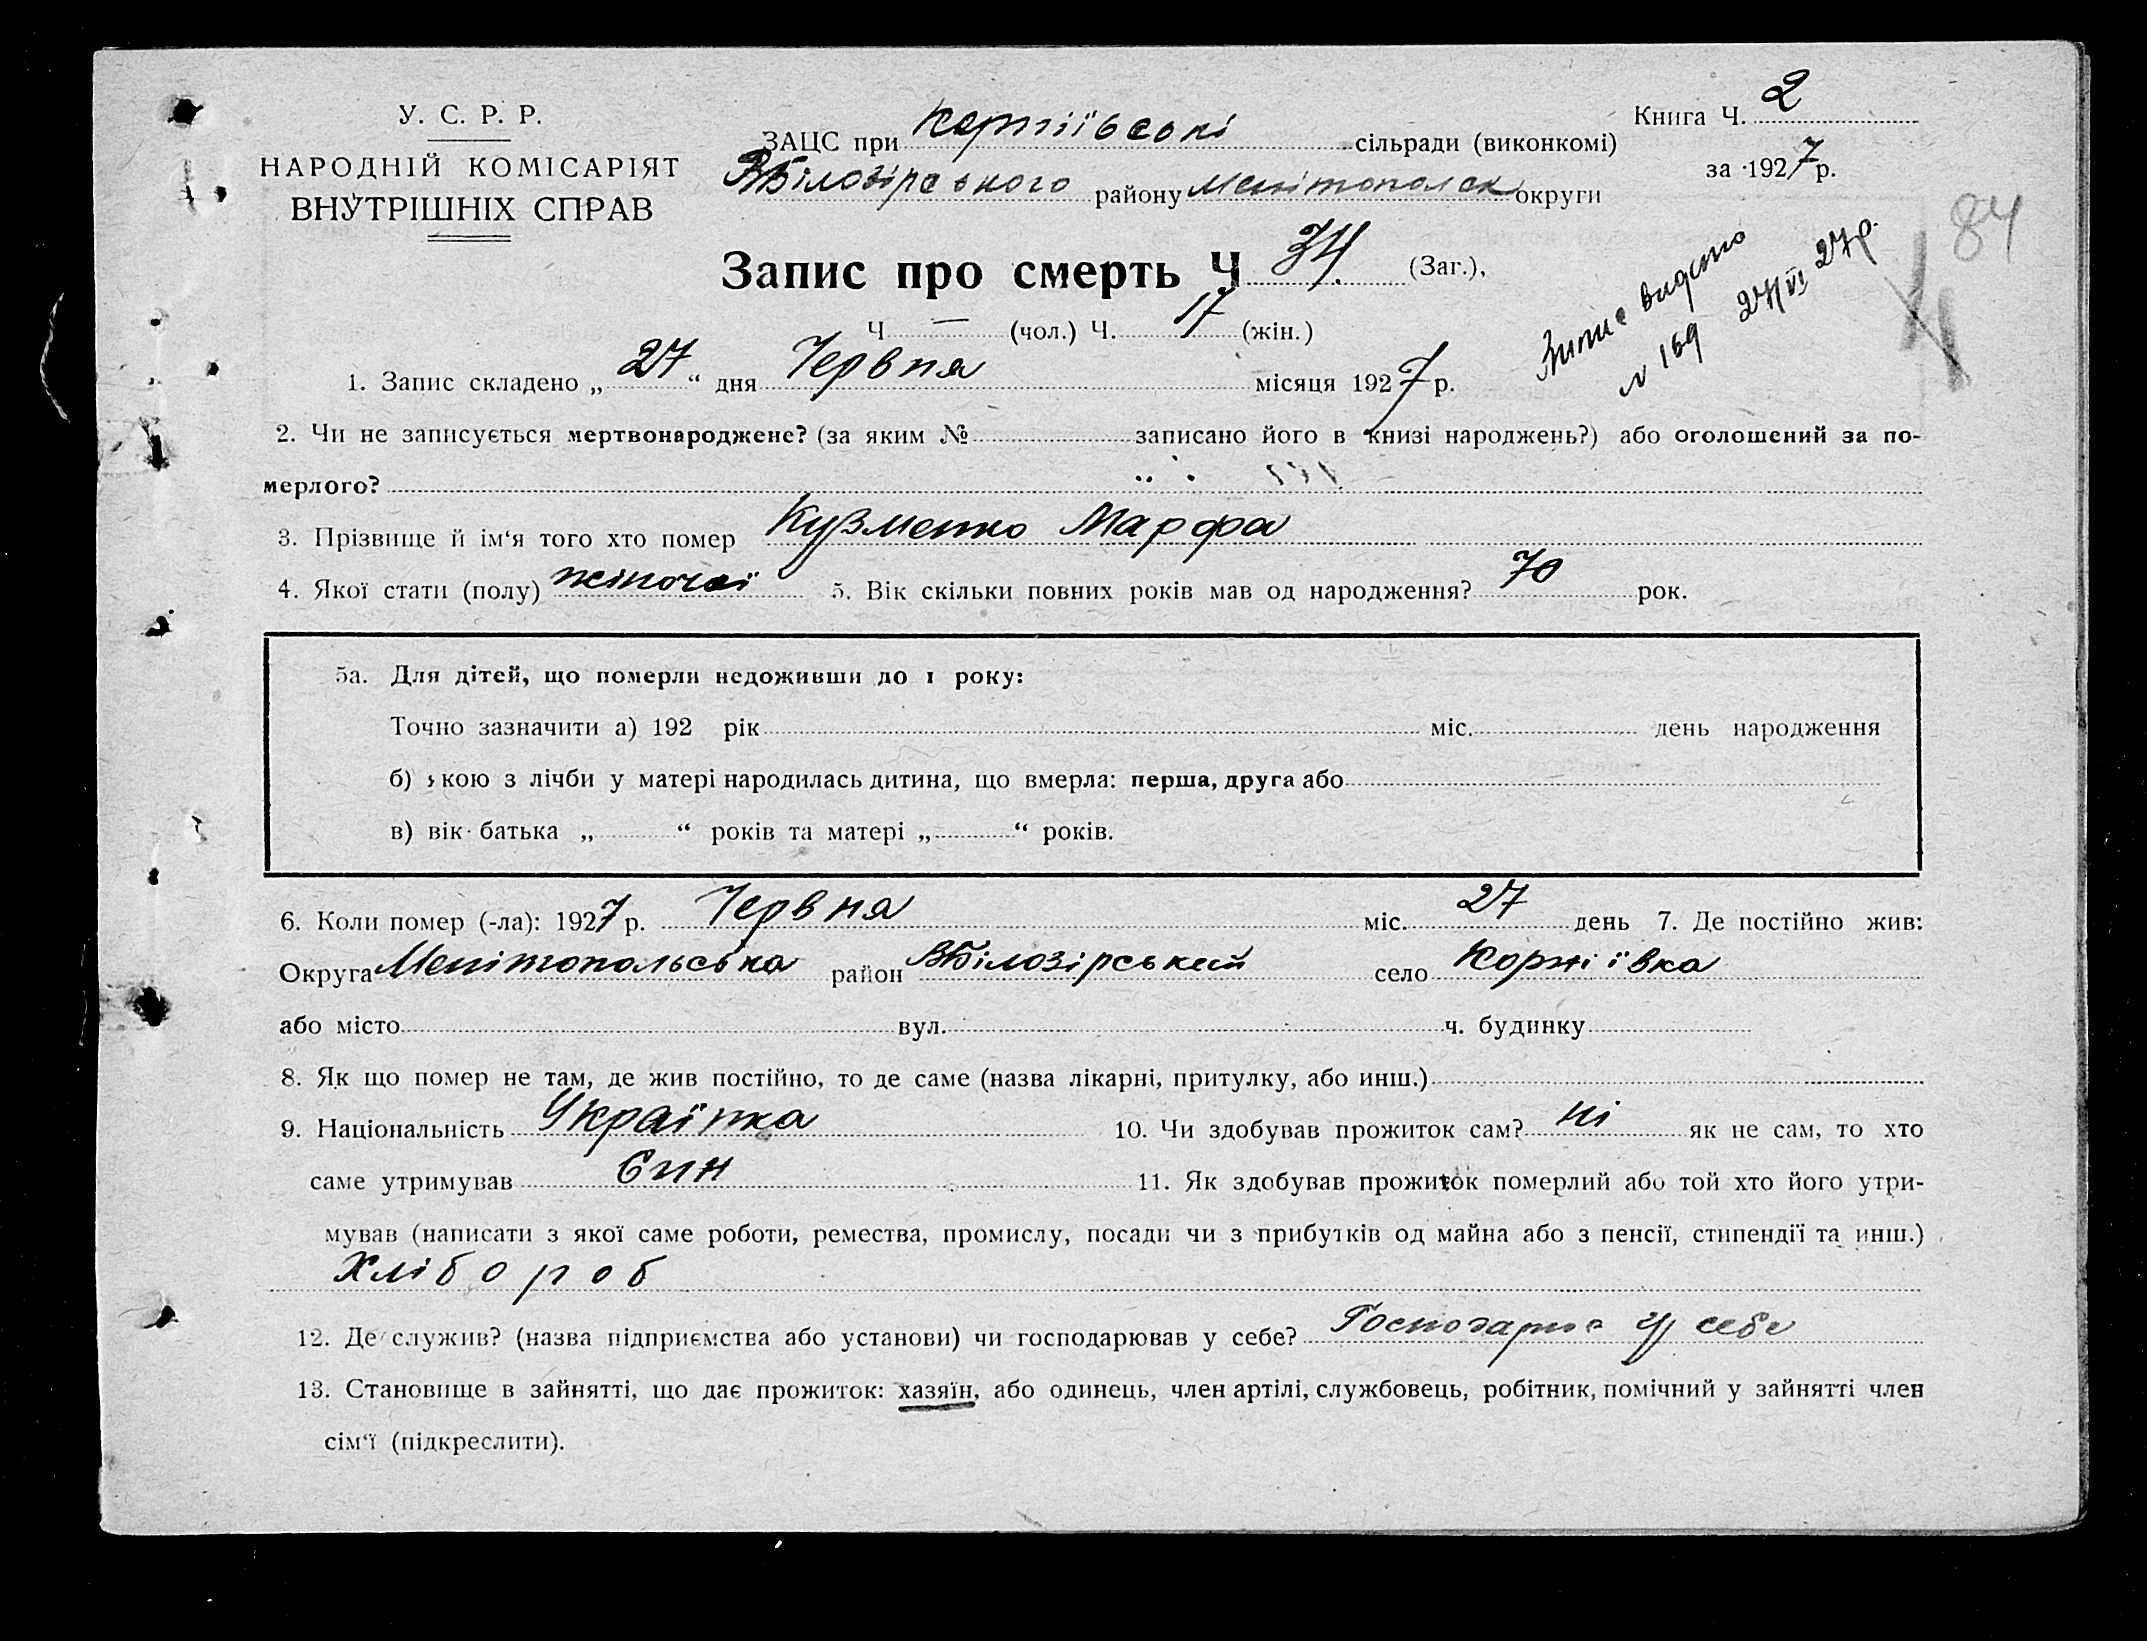 У. С. Р. Р.
НАРОДНІЙ КОМІСАРІЯТ
ВНУТРІШНІХ СПРАВ
ЗАЦС при Корніївські сільради (виконкомі)
ВБілозірського району Мелітопольск округи
Книга Ч. 2
за 1927 р.
84
Запис про смерть Ч 34. (Заг.),
Ч — (чол.) Ч. 17 (жін.)
видано
№ 169 27/VI 27р.
1. Запис складено „ 27 “ дня Червня місяця 1927 р.
2. Чи не записується мертвонароджене? (за яким № записано його в книзі народжень?) або оголошений за по-
мерлого?
3. Прізвище й ім‘я того хто помер Кузменко Марфа
4. Якої стати (полу) жіночої 5. Вік скільки повних років мав од народження? 70 рок.
5а. Для дітей, що померли недоживши до 1 року:
Точно зазначити а) 192 рік міс. день народження
б) якою з лічби у матері народилась дитина, що вмерла: перша, друга або
в) вік батька „ “ років та матері „ “ років.
6. Коли помер (-ла): 1927 р. Червня міс. 27 день 7. Де постійно жив:
Округа Мелітопольська район ВБілозірський село Корніївка
або місто вул. ч. будинку
8. Як що помер не там, де жив постійно, то де саме (назва лікарні, притулку, або инш.)
9. Національність Українка 10. Чи здобував прожиток сам? ні як не сам, то хто
саме утримував Син 11. Як здобував прожиток померлий або той хто його утри-
мував (написати з якої саме роботи, ремества, промислу, посади чи з прибутків од майна або з пенсії, стипендії та инш.)
Хлібороб
12. Де служив? (назва підприємства або установи) чи господарював у себе? у себе
13. Становище в зайнятті, що дає прожиток: хазяїн, або одинець, член артілі, службовець, робітник, помічний у зайнятті член
сім‘ї (підкреслити).